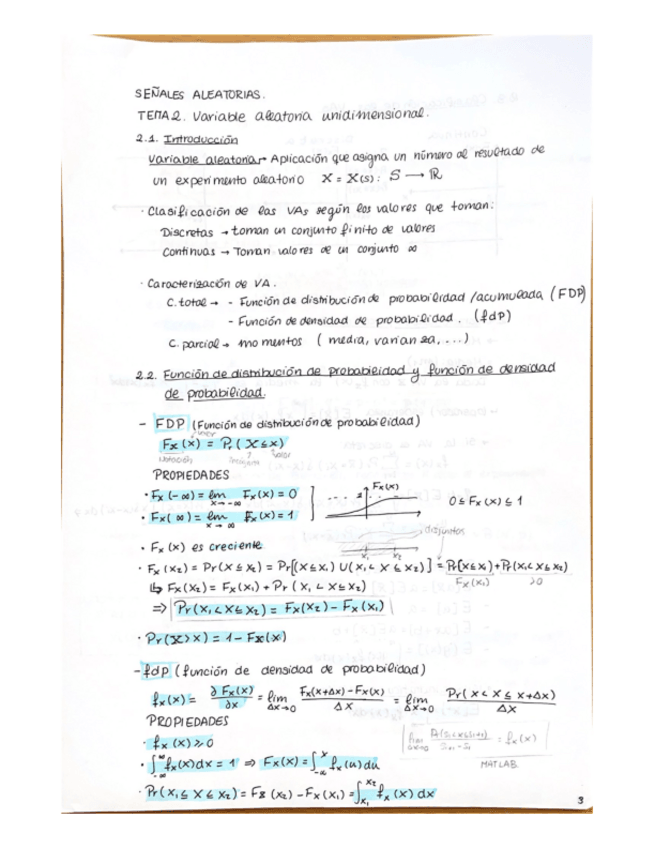 SEÑALES ALEATORIAS.
TEMA 2. Variable aleatoria unidimensional.
2.1. Introducción
Variable aleatoria → Aplicación que asigna un número al resultado de
un experimento aleatorio X = X(s): S → ℝ
· Clasificación de las VAs según los valores que toman:
Discretas → toman un conjunto finito de valores
Continuas → Toman valores de un conjunto ∞
· Caracterización de VA.
C. total → - Función de distribución de probabilidad /acumulada (FDP)
- Función de densidad de probabilidad. (fdP)
C. parcial → momentos ( media, varianza, ...)
2.2. Función de distribución de probabilidad y función de densidad
de probabilidad.
- FDP (Función de distribución de probabilidad)
Fx (x) = Pr ( X ≤ x)
notación incógnita valor
PROPIEDADES
· Fx (-∞) = lím x→-∞ Fx(x) = 0
Fx(x)
0 ≤ Fx (x) ≤ 1
· Fx( ∞) = lím x→∞ Fx(x) = 1
disjuntos
· Fx (x) es creciente
x₁ x₂
· Fx (x₂) = Pr (X ≤ x₂) = Pr[(X ≤ x₁) U (x₁ < X ≤ x₂)] = Pr(X ≤ x₁) + Pr(x₁ < X ≤ x₂)
Fx(x₁) >0
↳ Fx(x₂) = Fx(x₁) + Pr ( x₁ < X ≤ x₂)
⇒ Pr(x₁ < X ≤ x₂) = Fx(x₂) - Fx(x₁)
· Pr(X > x) = 1 - Fx(x)
- fdp (función de densidad de probabilidad)
fx(x) = ∂Fx(x)/∂x = lím Δx→0 Fx(x+Δx) - Fx(x) / Δx = lím Δx→0 Pr( x < X ≤ x+Δx) / Δx
PROPIEDADES
· fx (x) ≥ 0
= fx(x)
· ∫_-∞^∞ fx(x)dx = 1 ⇒ Fx(x) = ∫_-∞^x fx(u) du
MATLAB.
· Pr( x₁ ≤ X ≤ x₂) = FX (x₂) - Fx (x₁) = ∫_x₁^x₂ fx (x) dx
3